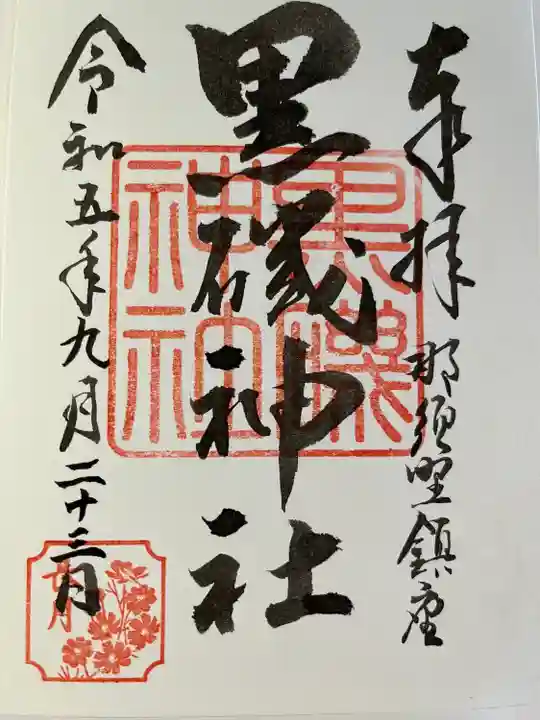 奉拝
那須野鎮座
黒磯神社
黒磯
神社
令和五年九月二十三日